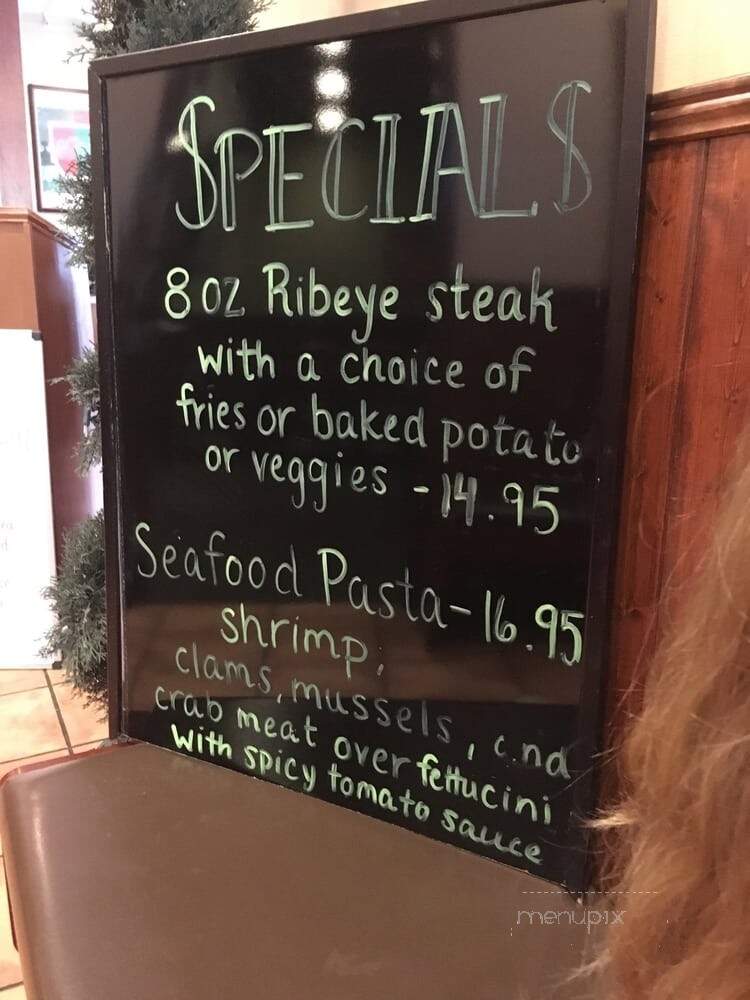 SPECIALS
8 oz Ribeye steak
with a choice of
fries or baked potato
or veggies - 14.95
Seafood Pasta - 16.95
shrimp,
clams, mussels, and
crab meat over fettucini
with spicy tomato sauce
menupix